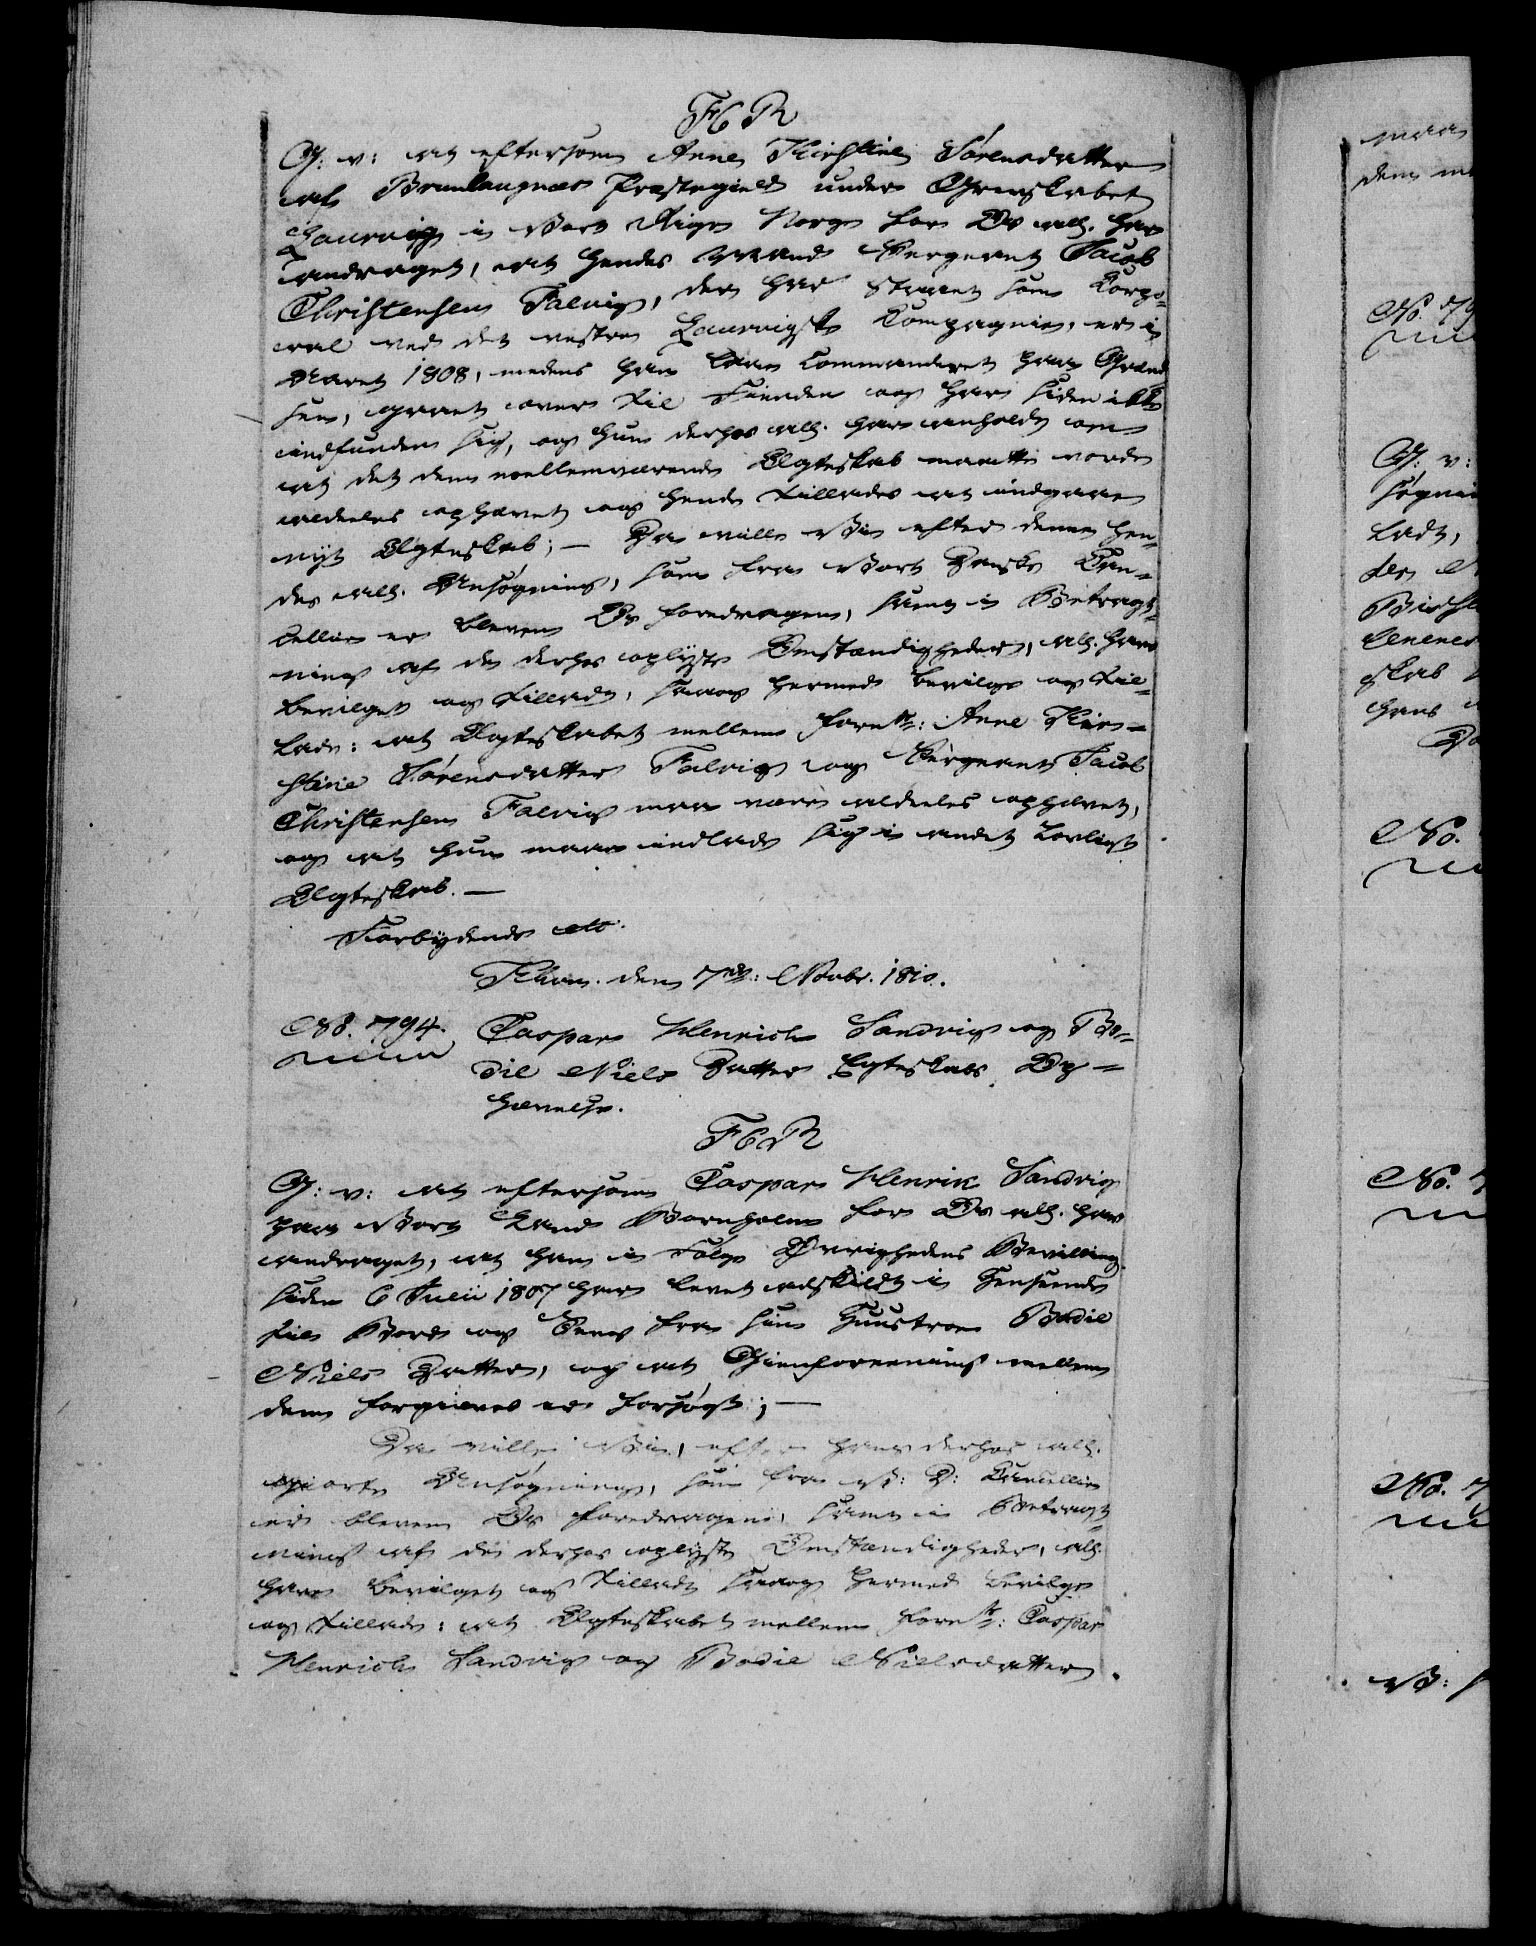 F 6 R
G: v: at eftersom Anne Kirstine Sørensdatter
af Brunlaugnæs Præstegield under Grevskabet
Laurvig i Vort Rige Norge for Os all. har
andraget, at hendes Mand Sergeant Jacob
Christensen Falvig, der har staaet som Corpo-
ral ved det vestre Laurvigske Compagnie, er i
Aaret 1808, medens han var commanderet paa Grænd-
sen, gaaet over til Fienden og har siden ikke
indfunden sig, og hun derhos all. har anholdt om
at det dem mellemværende Ægteskab maatte vorde
aldeles ophævet og hende tillades at indgaae
nyt Ægteskab; — Da ville Vi efter denne hen-
des all. Ansøgning, som fra Vort Danske Can-
cellie er bleven Os foredragen, samt i Betragt-
ning af de derhos oplyste Omstændigheder, all. have
bevilget og tilladt, saa og hermed bevilge og til-
lade: at Ægteskabet mellem forne: Anne Kir-
stine Sørensdatter Falvig og Sergeant Jacob
Christensen Falvig maa være aldeles ophævet,
og at hun maa indlade sig i andet lovligt
Ægteskab. —
Forbydende etc.
Khavn. den 7de: Novbr. 1810.
No. 794.
Caspar Henrich Sandvig og Bo-
dil Niels Datter Egteskabs Op-
hævelse.
F 6 R
G: v: at eftersom Caspar Henrik Sandvig
paa Vort Land Bornholm for Os all. har
andraget, at han i Følge Øvrighedens Bevilling
siden 6 Julii 1807 har levet adskildt i Henseende
til Bord og Seng fra sin Hustroe Bodil
Niels Datter, og at Gienforeening mellem
dem forgieves er forsøgt; —
Da ville Vi, efter hans derhos all.
giorte Ansøgning, som fra V: D: Cancellie
er bleven Os foredragen, samt i Betragt-
ning af de derhos oplyste Omstændigheder, all.
have bevilget og tilladt saa og hermed bevilge
og tillade: at Ægteskabet mellem forne: Caspar
Henrich Sandvig og Bodil Nielsdatter
maa
No. 79
G: v:
No.
No.
No. 7